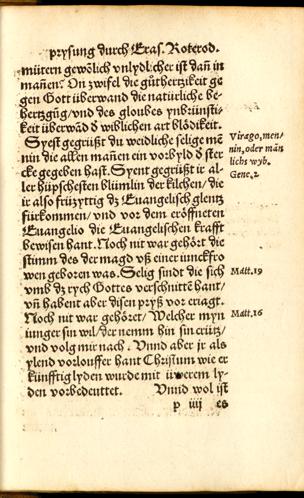 prysung durch Eras. Roterod.
mütern gewōlich vnlydlicher ist dañ in
mañen. On zwifel die gůthertzikeit ge
gen Gott überwand die natürliche be-
hertzgūg/vnd des gloubes ynbrünsti-
keit überwād ď wiblichen art blödikeit.
Syest gegrüßt du weidliche selige mē
nin die allen mañen ein vorbyld ď ster
cke gegeben hast. Syent gegrüßt ir al-
ler hüpschesten blümlin der kilchen/die
ir also früzyttig dz Euangelisch glentz
fürkommen/vnd vor dem eröffneten
Euangelio die Euangelischen krafft
bewisen hant. Noch nit war gehört die
stimm des der magd vß einer iunckfro
wen geboren was. Selig sindt die sich
vmb dz rych Gottes verschnittē hant/
vñ habent aber disen pryß vor eriagt.
Noch nit war gehöret/Welcher myn
iunger sin wil/der nemm hin sin crütz/
vnd volg mir nach. Vnnd aber ir als
ylend vorlouffer hant Christum wie er
künfftig lyden wurde mit üwerem ly-
den vorbedeuttet. Vnnd wol ist
p iiij es
Virago, men/
nin, oder män
lichs wyb.
Gene.2
Matt.19
Matt.16